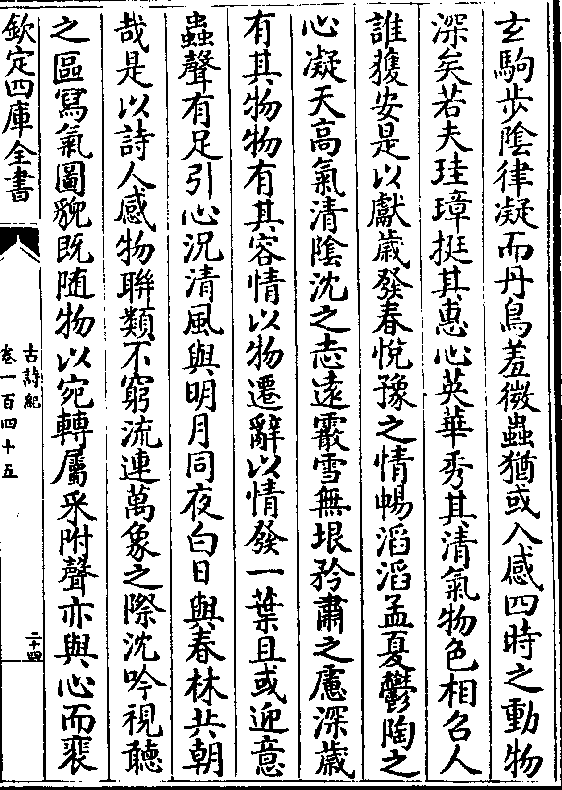 玄駒步陰律凝而丹鳥羞微蟲猶或入感四時之動物
深矣若夫珪璋挺其惠心英華秀其清氣物色相召人
誰獲安是以獻歳發春悅豫之情暢滔滔孟夏鬱陶之
心凝天高氣清陰沈之志遠霰雪無垠矜肅之慮深歳
有其物物有其容情以物遷辭以情發一葉且或迎意
蟲聲有足引心況清風與明月同夜白日與春林共朝
哉是以詩人感物聨類不窮流連萬象之際沈吟視聽
之區寫氣圖貌既随物以宛轉屬采附聲亦與心而裴
欽定四庫全書
古詩紀
卷一百四十五
二十四